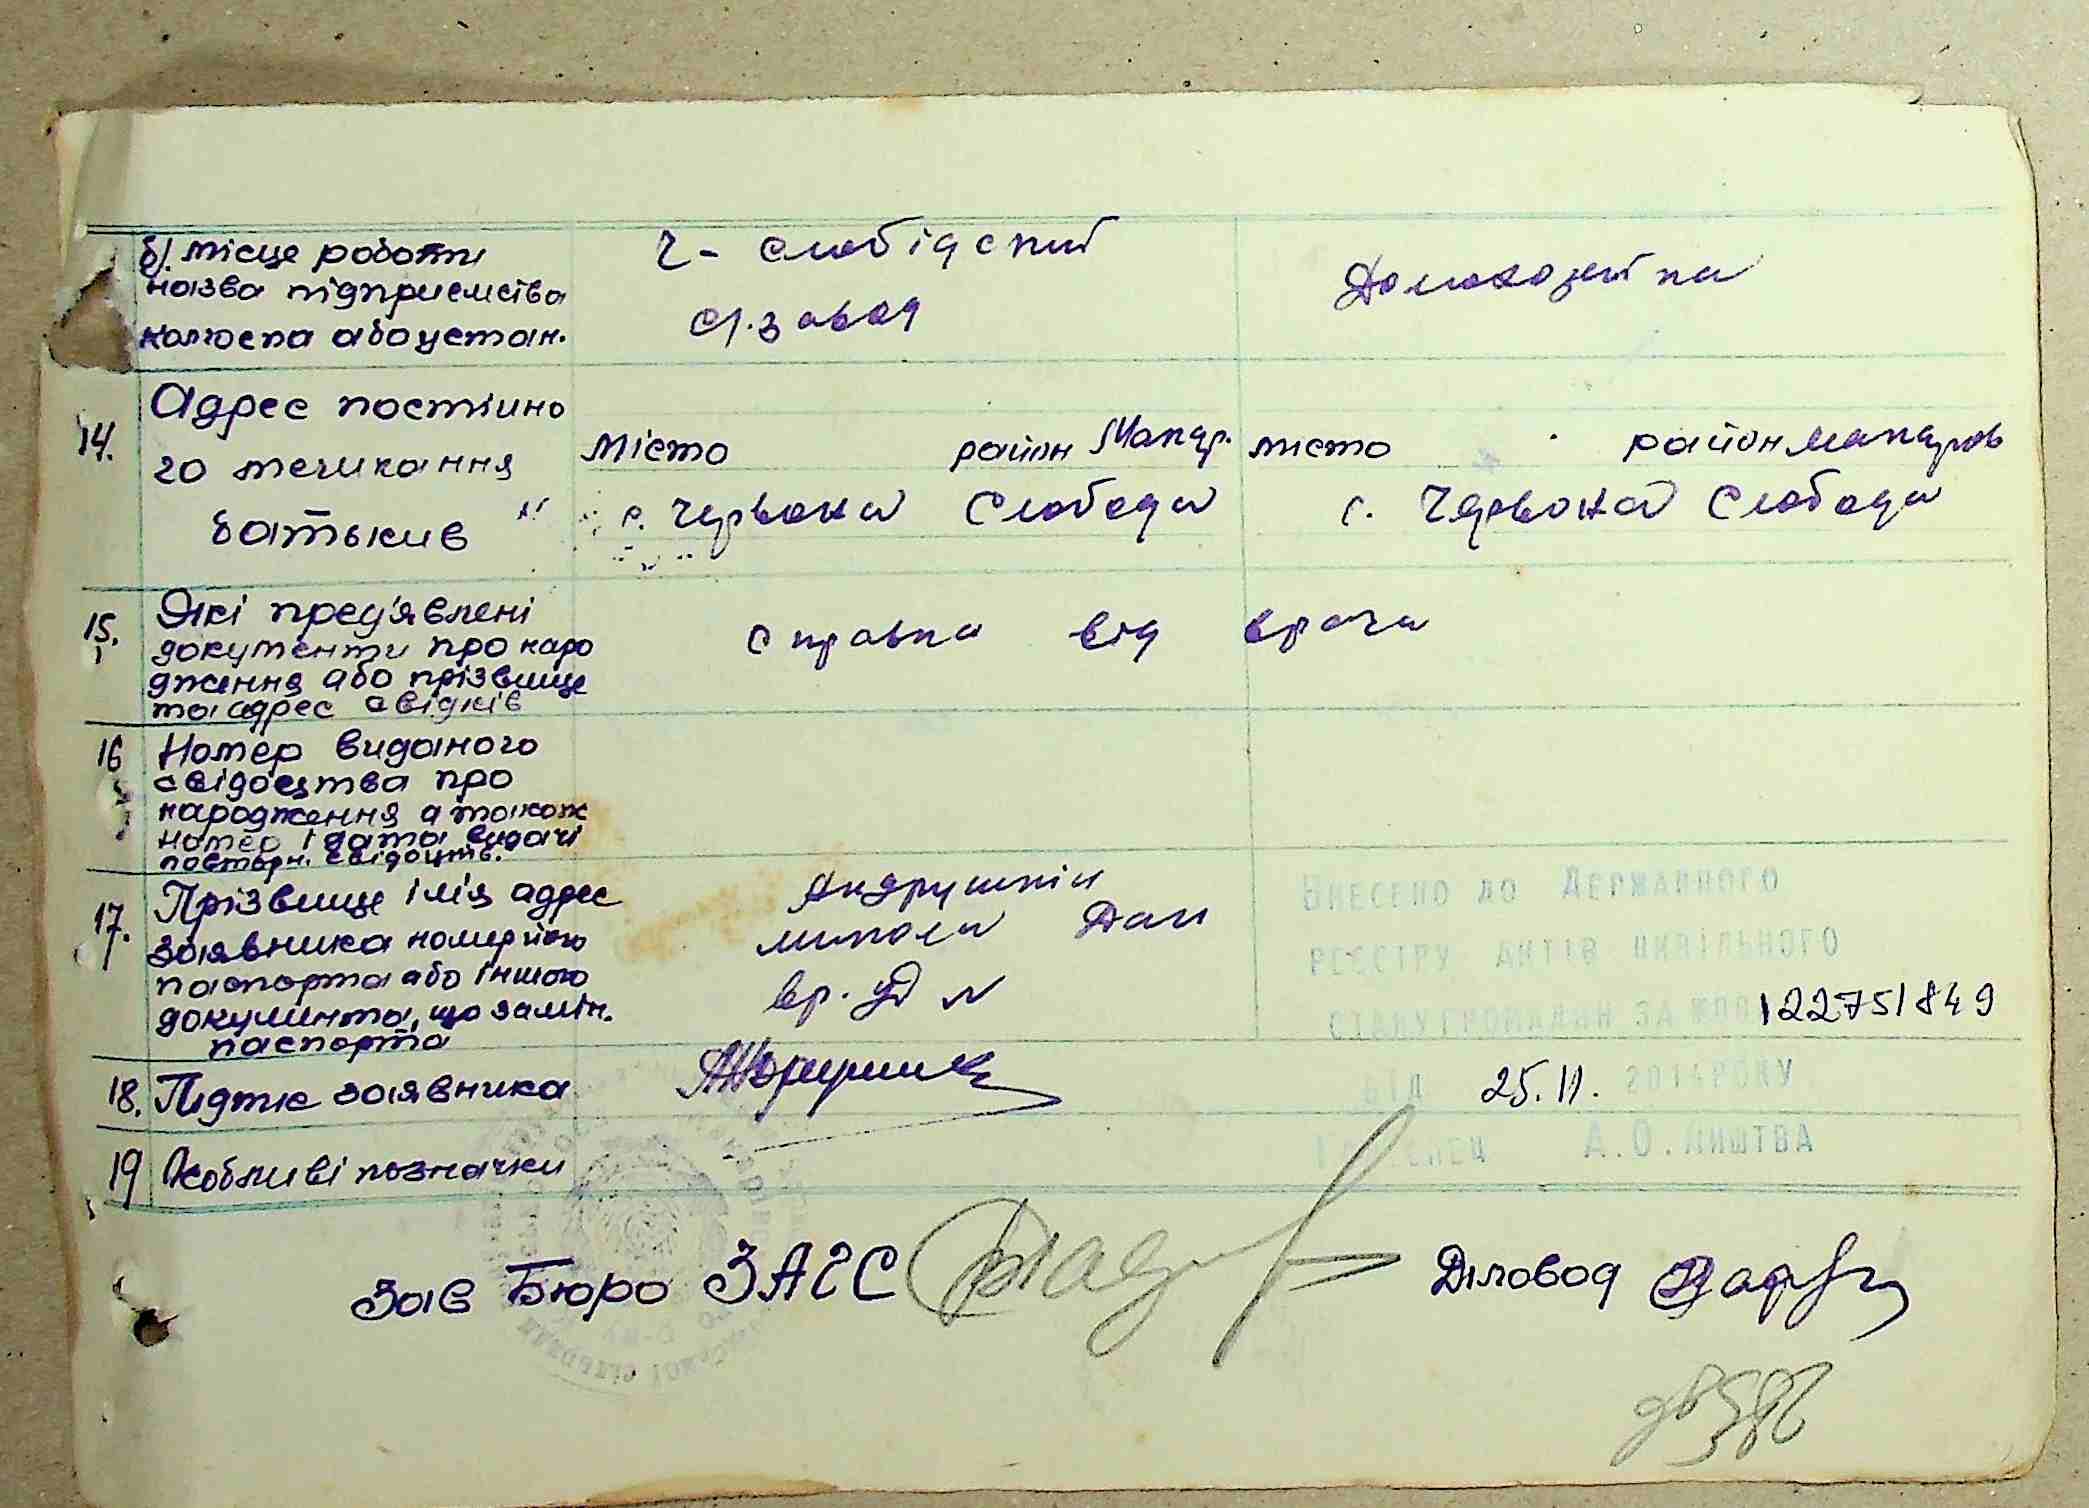 б). місце роботи
назва підприємства
колгоспа або устан.
Ч- слобідский
сп. завод
Домохозяйка
14. Адрес постійно
го мешкання
батьків
місто район Макар.
с. Червона Слобода
місто район Макаров
с. Червона Слобода
15. Які пред'явлені
документи про наро
дження або прізвище
та адрес свідків
справка від врача
16 Номер виданого
свідоцтва про
народження а також
номер і дата видачі
повторн. свідоцтв.
17. Прізвище ім'я адрес
заявника номер його
паспорта або іншого
документа, що замін.
паспорта
Андрушкін
микола Дан
вр. уд N
Внесено до Державного
реєстру актів цивільного
стану громадян за
122751849
від 25.11. 2014 року
А.О. Лиштва
18. Підпис заявника
19 Особливі позначки
Зав Бюро ЗАГС
Діловод